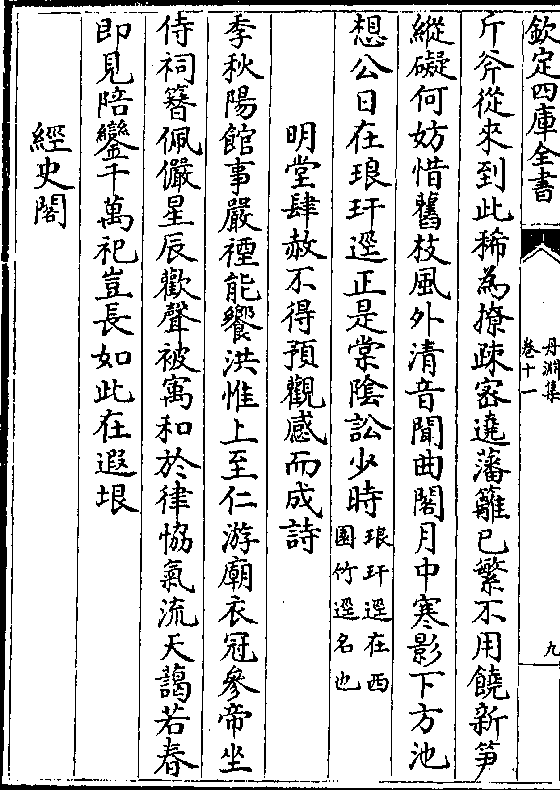 欽定四庫全書
丹淵集
卷十一
九
斤斧從來到此稀為撩疎密遶藩籬已繁不用饒新笋
縱礙何妨惜舊枝風外清音聞曲閣月中寒影下方池
想公日在琅玕逕正是棠陰訟少時琅玕逕在西
園竹逕名也
明堂肆赦不得預觀感而成詩
季秋陽館事嚴禋能饗洪惟上至仁游廟衣冠參帝坐
侍祠簪佩儼星辰歡聲被寓和於律恊氣流天藹若春
即見陪鑾千萬祀豈長如此在遐垠
經史閣